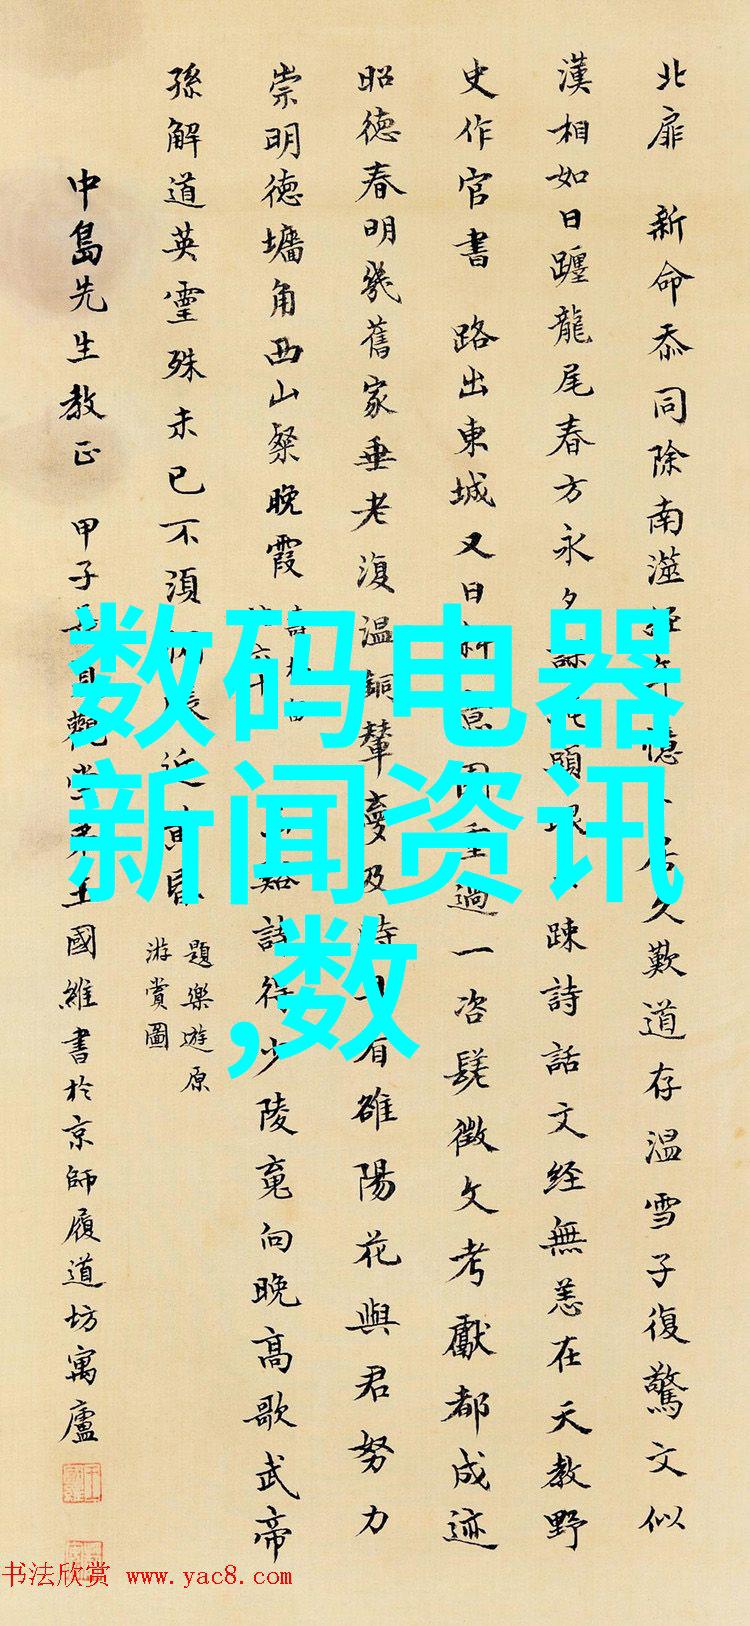 北扉 新命忝同除南遊經年憶 居久歎道存温雪子復驚文似
漢相如日躔龍尾春方永夕 頭 疎詩話文経無恙在天教野
史作官書 路出東城又日斜 重過一咨嗟徵文考獻都成迹
昭德春明幾舊家垂老復温銅輦夢及時 有雒陽花與君努力
崇明德墉角西山粲晚霞
詩得少陵竟向晚高歌武帝
孫解道英靈殊未已不須 近
題樂遊原
游賞圖
中島先生教正 甲子 觀堂弟王國維書於京師履道坊寓廬
数码电器
新闻资讯
,数
书法欣赏 www.yac8.com